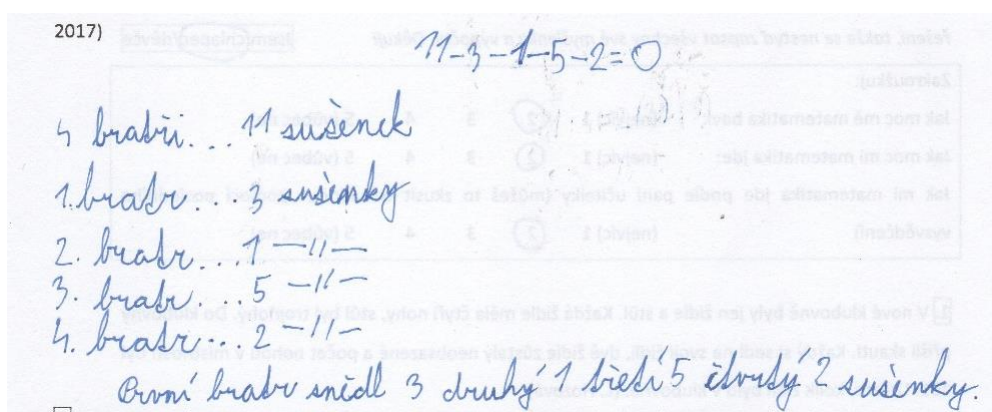 2017)
11-3-1-5-2=0
4 bratři... 11 sušenek
1. bratr... 3 sušenky
2. bratr... 1 —〃—
3. bratr... 5 —〃—
4. bratr... 2 —〃—
První bratr snědl 3 druhý 1 třetí 5 čtvrtý 2 sušenky.